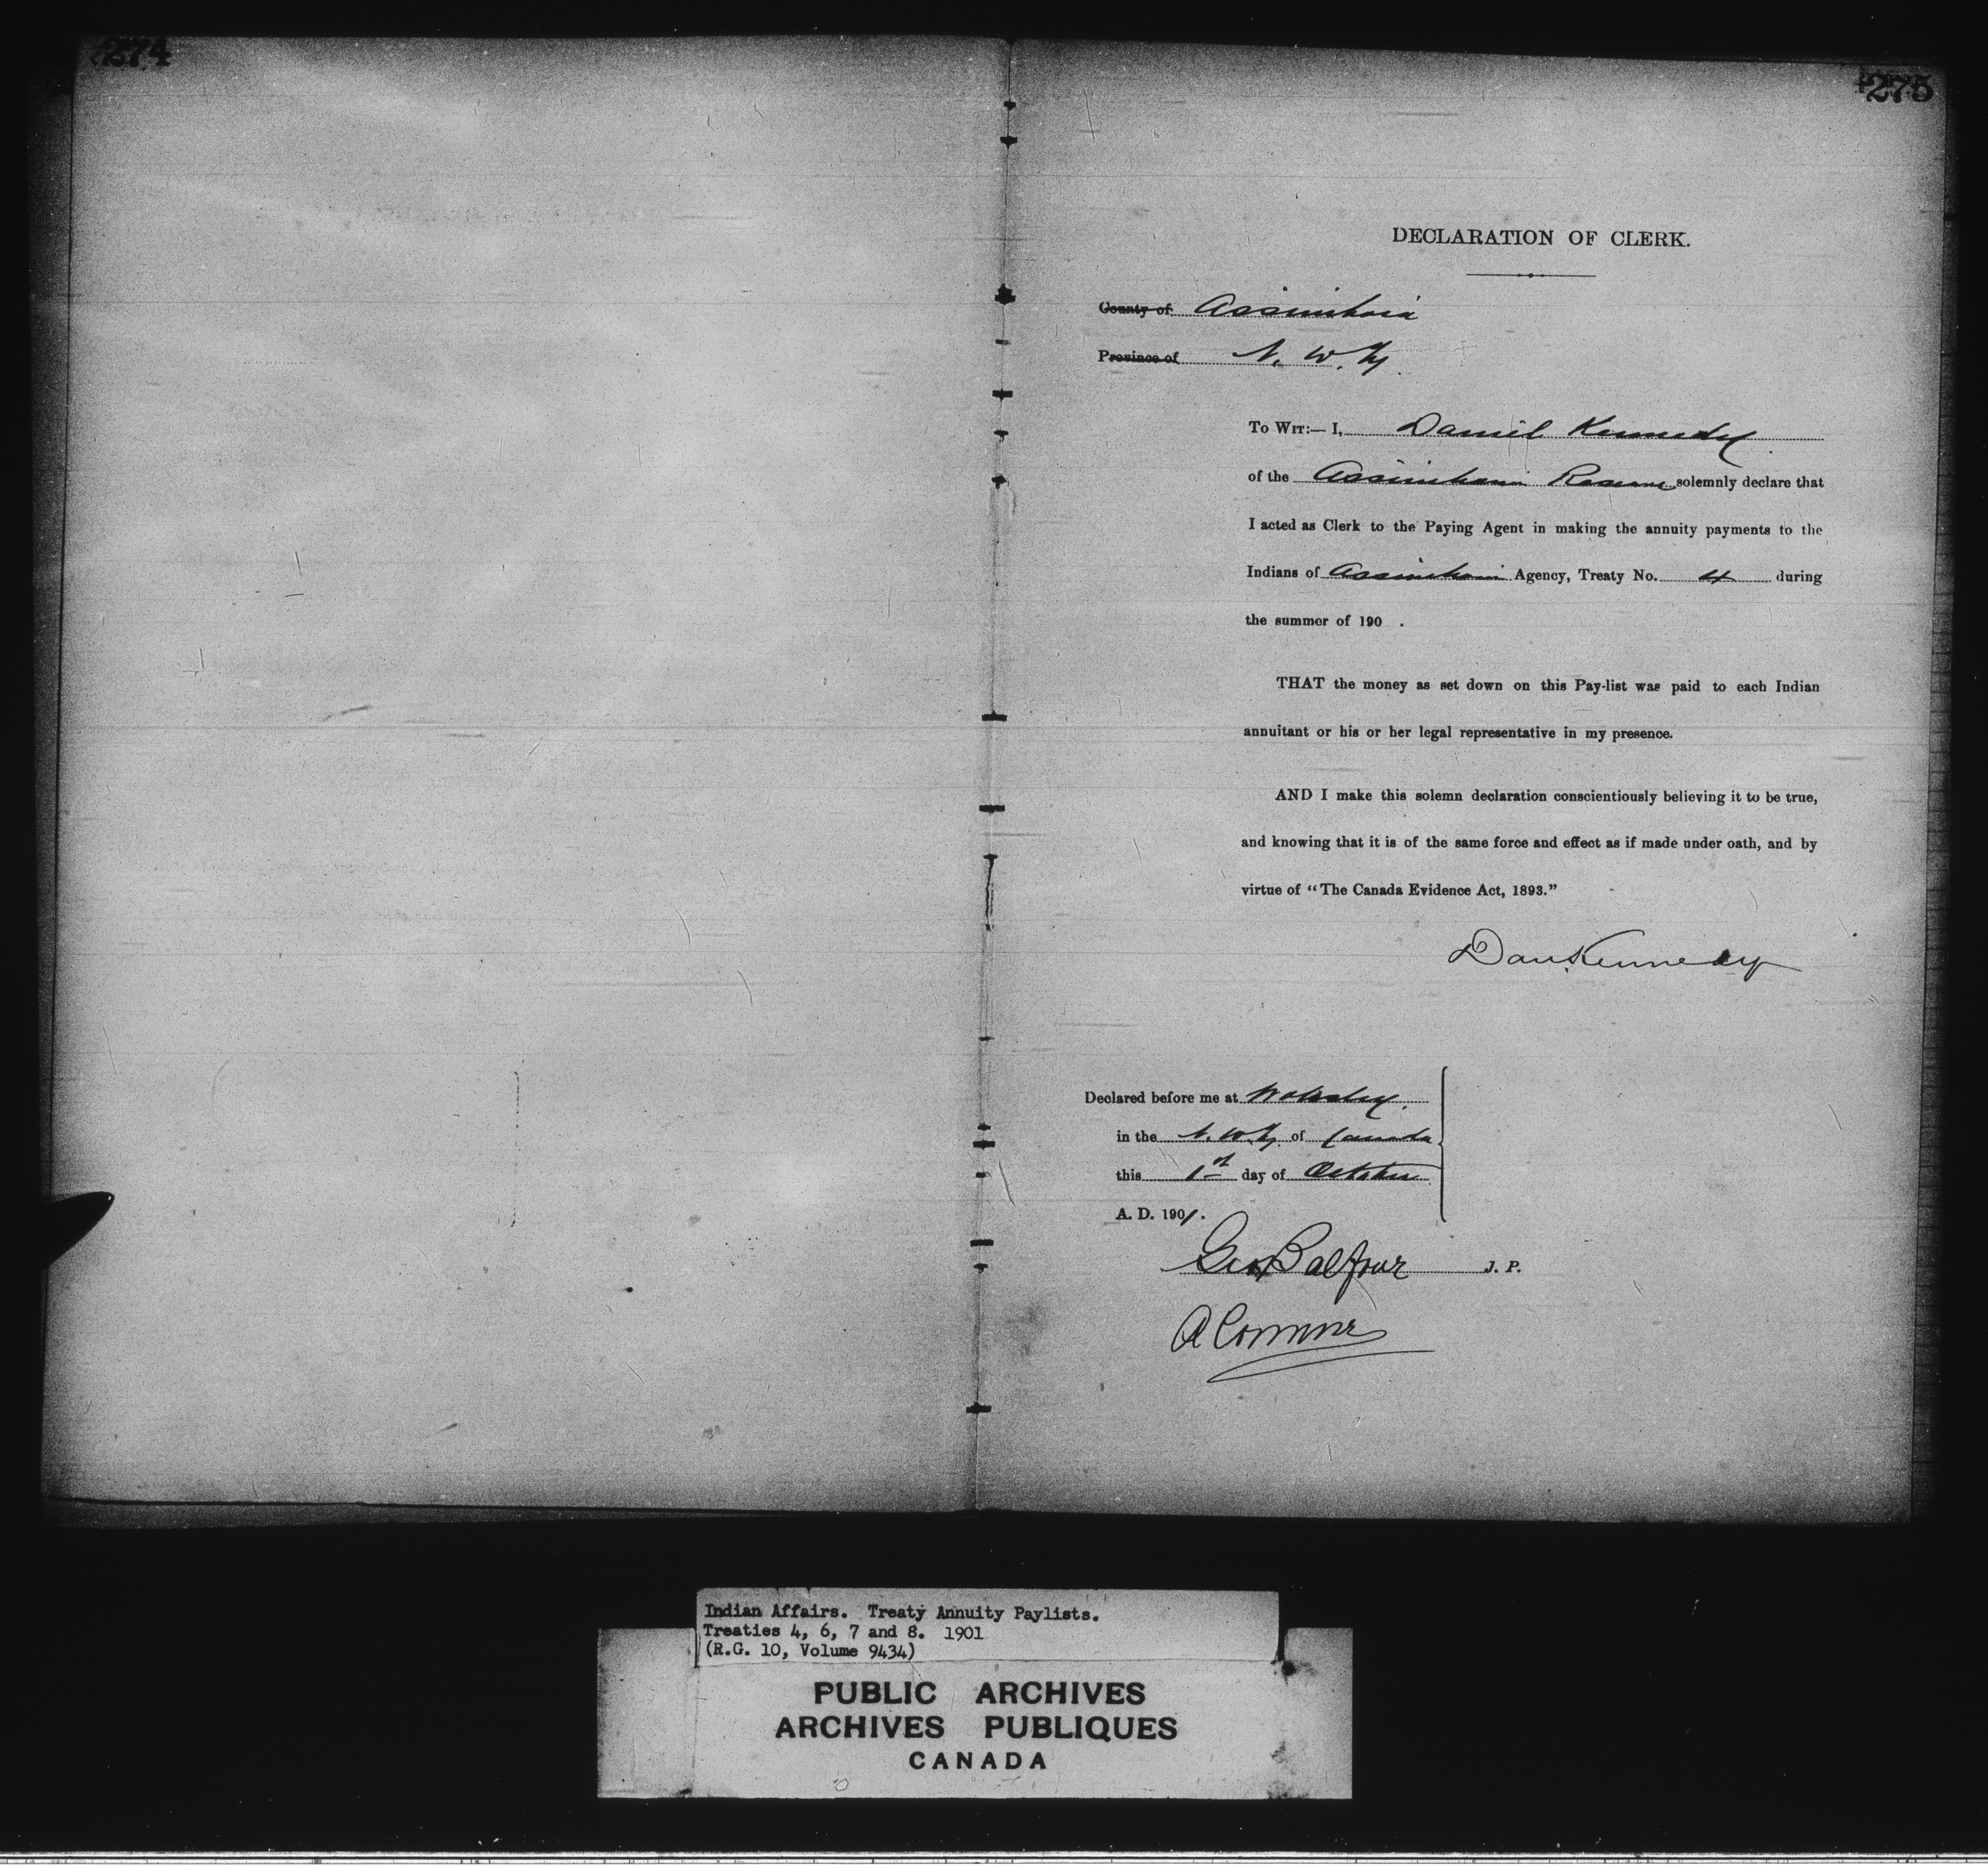 274
275
DECLARATION OF CLERK.
County of Assiniboia
Province of N. W. Ty
To Wit:— I, Daniel Kennedy
of the Assiniboine Reserve solemnly declare that
I acted as Clerk to the Paying Agent in making the annuity payments to the
Indians of Assiniboine Agency, Treaty No. 4 during
the summer of 190 .
THAT the money as set down on this Pay-list was paid to each Indian
annuitant or his or her legal representative in my presence.
AND I make this solemn declaration conscientiously believing it to be true,
and knowing that it is of the same force and effect as if made under oath, and by
virtue of "The Canada Evidence Act, 1893."
Dan Kennedy
Declared before me at Wolseley.
in the N. W. Ty. of Canada
this 1st day of October
A. D. 1901.
Geo Balfour J. P.
Indian Affairs. Treaty Annuity Paylists.
Treaties 4, 6, 7 and 8. 1901
(R.G. 10, Volume 9434)
PUBLIC ARCHIVES
ARCHIVES PUBLIQUES
CANADA